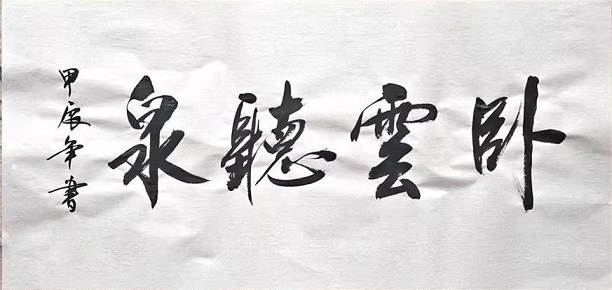 卧雲聽泉
甲辰年書